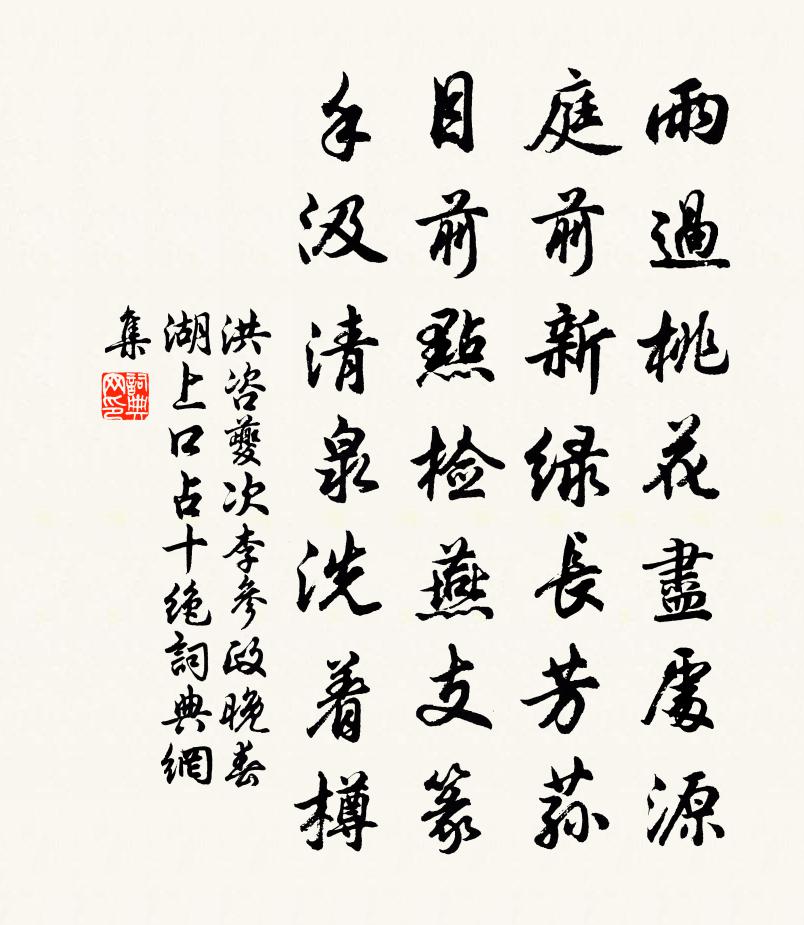 雨過桃花盡處源
庭前新綠長芳蓀
目前點檢燕支篆
手汲清泉洗着樽
洪咨夔次李參政晚春
湖上口占十絶詞典網
集
詞典网印